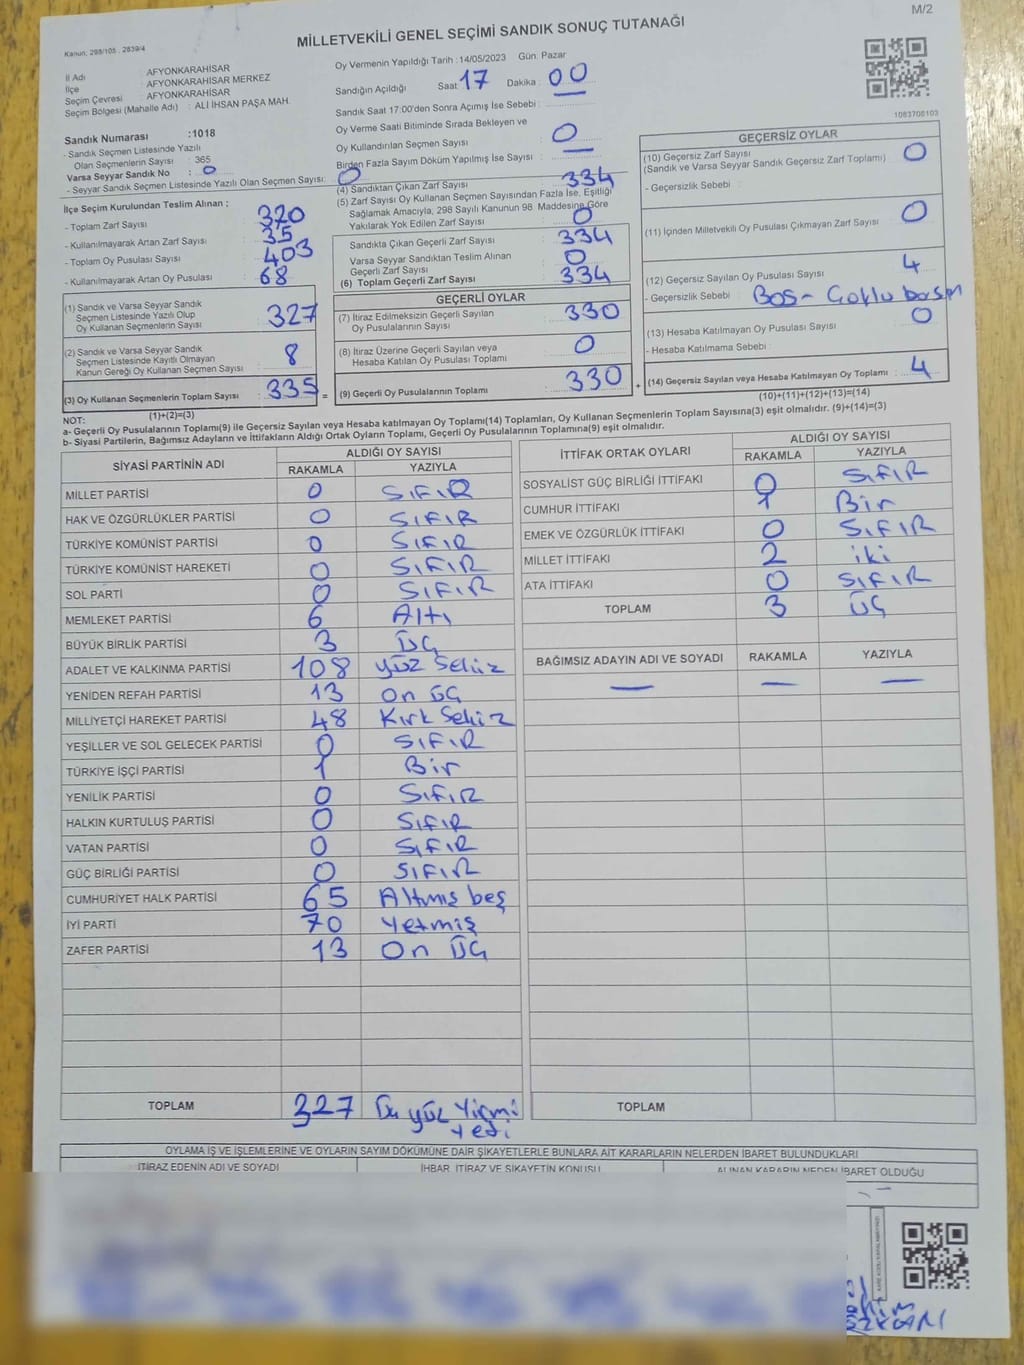 M/2
Kanun, 298/105 . 2839/4
MİLLETVEKİLİ GENEL SEÇİMİ SANDIK SONUÇ TUTANAĞI
İl Adı : AFYONKARAHİSAR
İlçe : AFYONKARAHİSAR MERKEZ
Seçim Çevresi : AFYONKARAHİSAR
Seçim Bölgesi (Mahalle Adı) : ALİ İHSAN PAŞA MAH.
Sandık Numarası :1018
- Sandık Seçmen Listesinde Yazılı
Olan Seçmenlerin Sayısı : 365
Varsa Seyyar Sandık No : 0
- Seyyar Sandık Seçmen Listesinde Yazılı Olan Seçmen Sayısı: 0
İlçe Seçim Kurulundan Teslim Alınan ;
- Toplam Zarf Sayısı : 370
- Kullanılmayarak Artan Zarf Sayısı : 35
- Toplam Oy Pusulası Sayısı : 403
- Kullanılmayarak Artan Oy Pusulası : 68
(1) Sandık ve Varsa Seyyar Sandık
Seçmen Listesinde Yazılı Olup
Oy Kullanan Seçmenlerin Sayısı : 327
(2) Sandık ve Varsa Seyyar Sandık
Seçmen Listesinde Kayıtlı Olmayan
Kanun Gereği Oy Kullanan Seçmen Sayısı : 8
(3) Oy Kullanan Seçmenlerin Toplam Sayısı : 335 =
(1)+(2)=(3)
Oy Vermenin Yapıldığı Tarih : 14/05/2023 Gün: Pazar
Sandığın Açıldığı Saat 17 Dakika : 00
Sandık Saat 17:00'den Sonra Açımış İse Sebebi :
Oy Verme Saati Bitiminde Sırada Bekleyen ve
Oy Kullandırılan Seçmen Sayısı : 0
Birden Fazla Sayım Döküm Yapılmış İse Sayısı :
(4) Sandıktan Çıkan Zarf Sayısı : 334
(5) Zarf Sayısı Oy Kullanan Seçmen Sayısından Fazla İse, Eşitliği
Sağlamak Amacıyla, 298 Sayılı Kanunun 98. Maddesine Göre
Yakılarak Yok Edilen Zarf Sayısı : 0
Sandıkta Çıkan Geçerli Zarf Sayısı : 334
Varsa Seyyar Sandıktan Teslim Alınan
Geçerli Zarf Sayısı : 0
(6) Toplam Geçerli Zarf Sayısı : 334
GEÇERLİ OYLAR
(7) İtiraz Edilmeksizin Geçerli Sayılan
Oy Pusulalarının Sayısı : 330
(8) İtiraz Üzerine Geçerli Sayılan veya
Hesaba Katılan Oy Pusulası Toplamı : 0
(9) Geçerli Oy Pusulalarının Toplamı : 330 +
1083706103
GEÇERSİZ OYLAR
(10) Geçersiz Zarf Sayısı
(Sandık ve Varsa Seyyar Sandık Geçersiz Zarf Toplamı) : 0
- Geçersizlik Sebebi :
(11) İçinden Milletvekili Oy Pusulası Çıkmayan Zarf Sayısı : 0
(12) Geçersiz Sayılan Oy Pusulası Sayısı : 4
- Geçersizlik Sebebi : Boş - Çoklu basım
(13) Hesaba Katılmayan Oy Pusulası Sayısı : 0
- Hesaba Katılmama Sebebi :
(14) Geçersiz Sayılan veya Hesaba Katılmayan Oy Toplamı : 4
(10)+(11)+(12)+(13)=(14)
NOT:
a- Geçerli Oy Pusulalarının Toplamı(9) ile Geçersiz Sayılan veya Hesaba katılmayan Oy Toplamı(14) Toplamları, Oy Kullanan Seçmenlerin Toplam Sayısına(3) eşit olmalıdır. (9)+(14)=(3)
b- Siyasi Partilerin, Bağımsız Adayların ve İttifakların Aldığı Ortak Oyların Toplamı, Geçerli Oy Pusulalarının Toplamına(9) eşit olmalıdır.
SİYASİ PARTİNİN ADI ALDIĞI OY SAYISI
RAKAMLA YAZIYLA
MİLLET PARTİSİ 0 SIFIR
HAK VE ÖZGÜRLÜKLER PARTİSİ 0 SIFIR
TÜRKİYE KOMÜNİST PARTİSİ 0 SIFIR
TÜRKİYE KOMÜNİST HAREKETİ 0 SIFIR
SOL PARTİ 0 SIFIR
MEMLEKET PARTİSİ 6 Altı
BÜYÜK BİRLİK PARTİSİ 3 Üç
ADALET VE KALKINMA PARTİSİ 108 yüz Sekiz
YENİDEN REFAH PARTİSİ 13 On üç
MİLLİYETÇİ HAREKET PARTİSİ 48 Kırk Sekiz
YEŞİLLER VE SOL GELECEK PARTİSİ 0 SIFIR
TÜRKİYE İŞÇİ PARTİSİ 1 Bir
YENİLİK PARTİSİ 0 SIFIR
HALKIN KURTULUŞ PARTİSİ 0 SIFIR
VATAN PARTİSİ 0 SIFIR
GÜÇ BİRLİĞİ PARTİSİ 0 SIFIR
CUMHURİYET HALK PARTİSİ 65 Altmış beş
İYİ PARTİ 70 Yetmiş
ZAFER PARTİSİ 13 On üç
TOPLAM 327 Üç yüz Yirmi
Yedi
İTTİFAK ORTAK OYLARI ALDIĞI OY SAYISI
RAKAMLA YAZIYLA
SOSYALİST GÜÇ BİRLİĞİ İTTİFAKI 0 SIFIR
CUMHUR İTTİFAKI 1 Bir
EMEK VE ÖZGÜRLÜK İTTİFAKI 0 SIFIR
MİLLET İTTİFAKI 2 iki
ATA İTTİFAKI 0 SIFIR
TOPLAM 3 Üç
BAĞIMSIZ ADAYIN ADI VE SOYADI RAKAMLA YAZIYLA
— — —
TOPLAM
OYLAMA İŞ VE İŞLEMLERİNE VE OYLARIN SAYIM DÖKÜMÜNE DAİR ŞİKAYETLERLE BUNLARA AİT KARARLARIN NELERDEN İBARET BULUNDUKLARI
İTİRAZ EDENİN ADI VE SOYADI İHBAR, İTİRAZ VE ŞİKAYETİN KONUSU ALINAN KARARIN NEDEN İBARET OLDUĞU